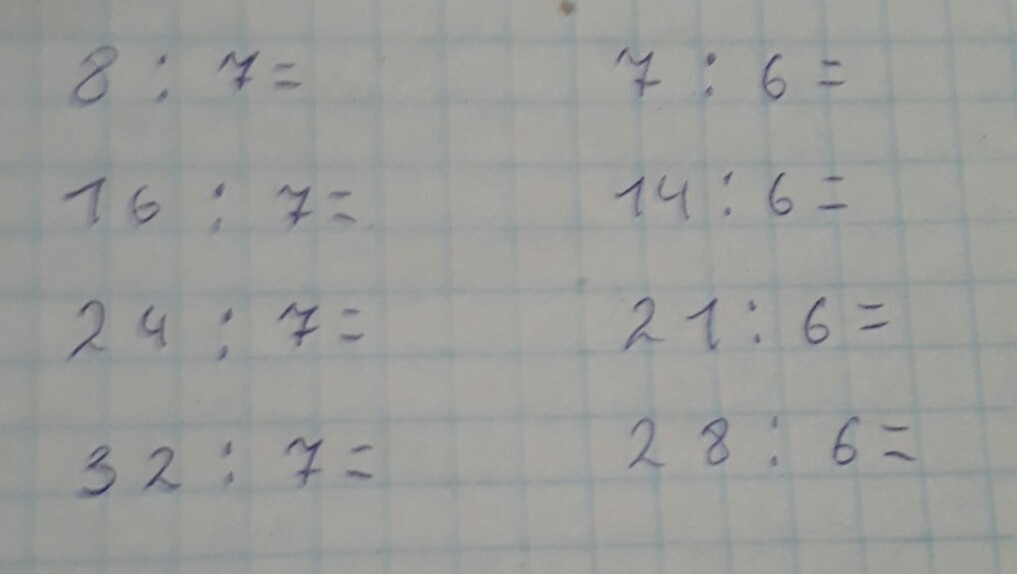 8 : 7 =
7 : 6 =
16 : 7 =
14 : 6 =
24 : 7 =
21 : 6 =
32 : 7 =
28 : 6 =